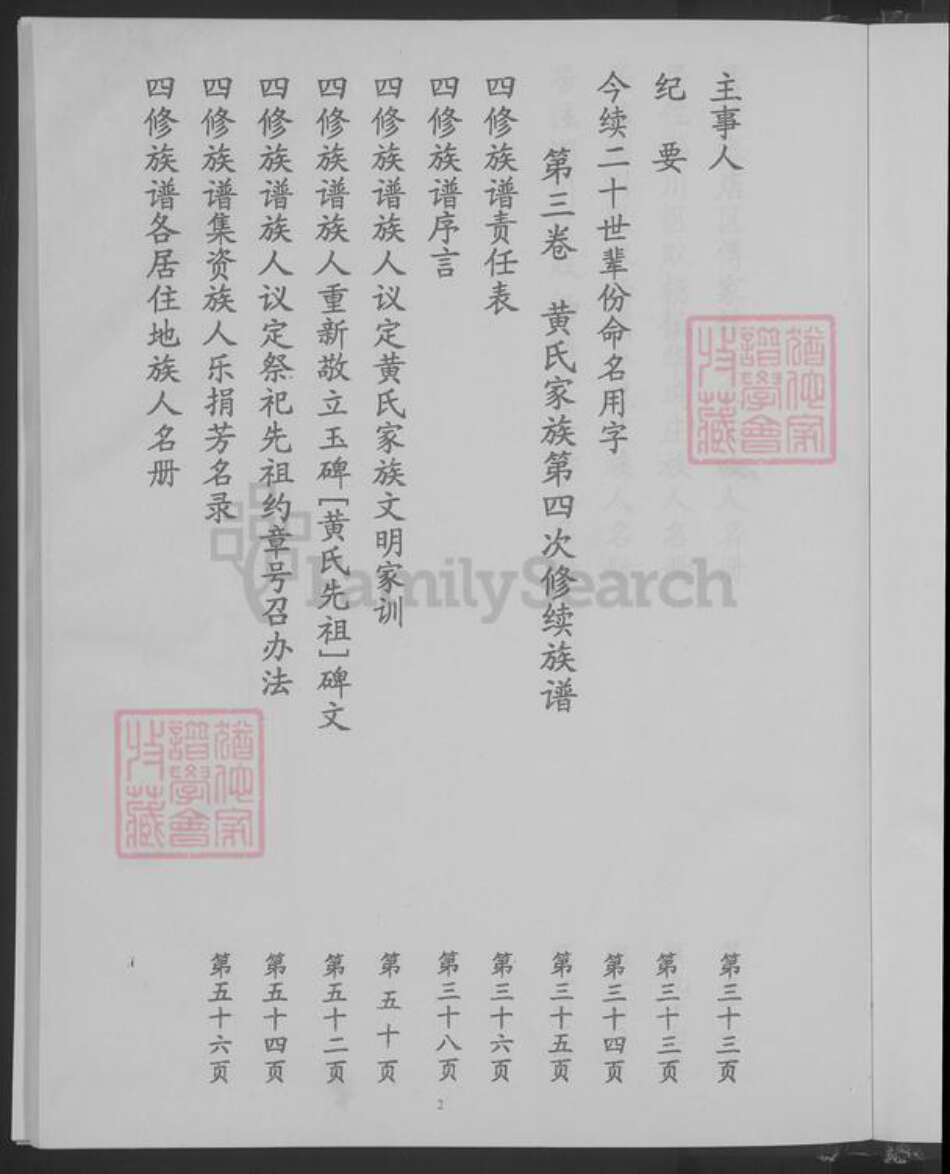 主事人 第三十三页
纪 要 第三十三页
今续二十世辈份命名用字 第三十四页
第三卷 黄氏家族第四次修续族谱 第三十五页
四修族谱责任表 第三十六页
四修族谱序言 第三十八页
四修族谱族人议定黄氏家族文明家训 第五十页
四修族谱族人重新敬立玉碑[黄氏先祖]碑文 第五十二页
四修族谱族人议定祭祀先祖约章号召办法 第五十四页
四修族谱集资族人乐捐芳名录 第五十六页
四修族谱各居住地族人名册
2
FamilySearch